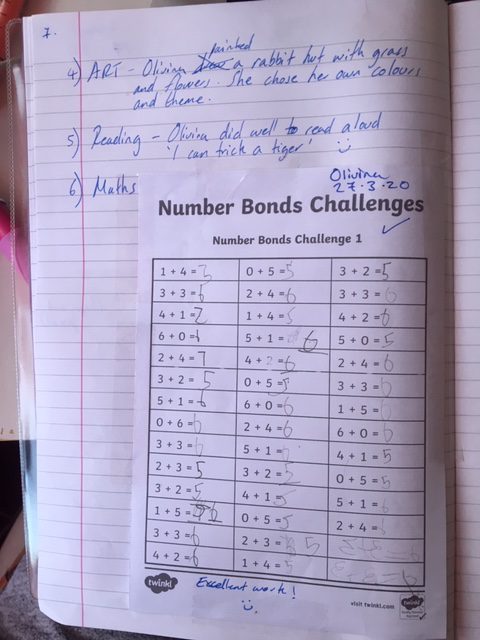 7.
painted
4) ART - Olivina a rabbit hut with grass
and flowers. She chose her own colours
and theme.
5) Reading - Olivina did well to read aloud
'I can trick a tiger'
6) Maths
Olivina
27.3.20
Number Bonds Challenges
Number Bonds Challenge 1
1 + 4 = 0 + 5 = 5 3 + 2 = 5
3 + 3 = 6 2 + 4 = 6 3 + 3 = 6
4 + 1 = 1 + 4 = 5 4 + 2 = 6
6 + 0 = 5 + 1 = 6 5 + 0 = 5
2 + 4 = 4 + 2 = 6 2 + 4 = 6
3 + 2 = 5 0 + 5 = 5 3 + 3 = 6
5 + 1 = 6 6 + 0 = 6 1 + 5 = 6
0 + 6 = 6 2 + 4 = 6 6 + 0 = 6
3 + 3 = 6 5 + 1 = 4 + 1 = 5
2 + 3 = 5 3 + 2 = 0 + 5 = 5
3 + 2 = 5 4 + 1 = 5 5 + 1 = 6
1 + 5 = 6 0 + 5 = 5 2 + 4 =
3 + 3 = 6 2 + 3 = 5
4 + 2 = 6 1 + 4 = 5
twinkl
Excellent work!
visit twinkl.com